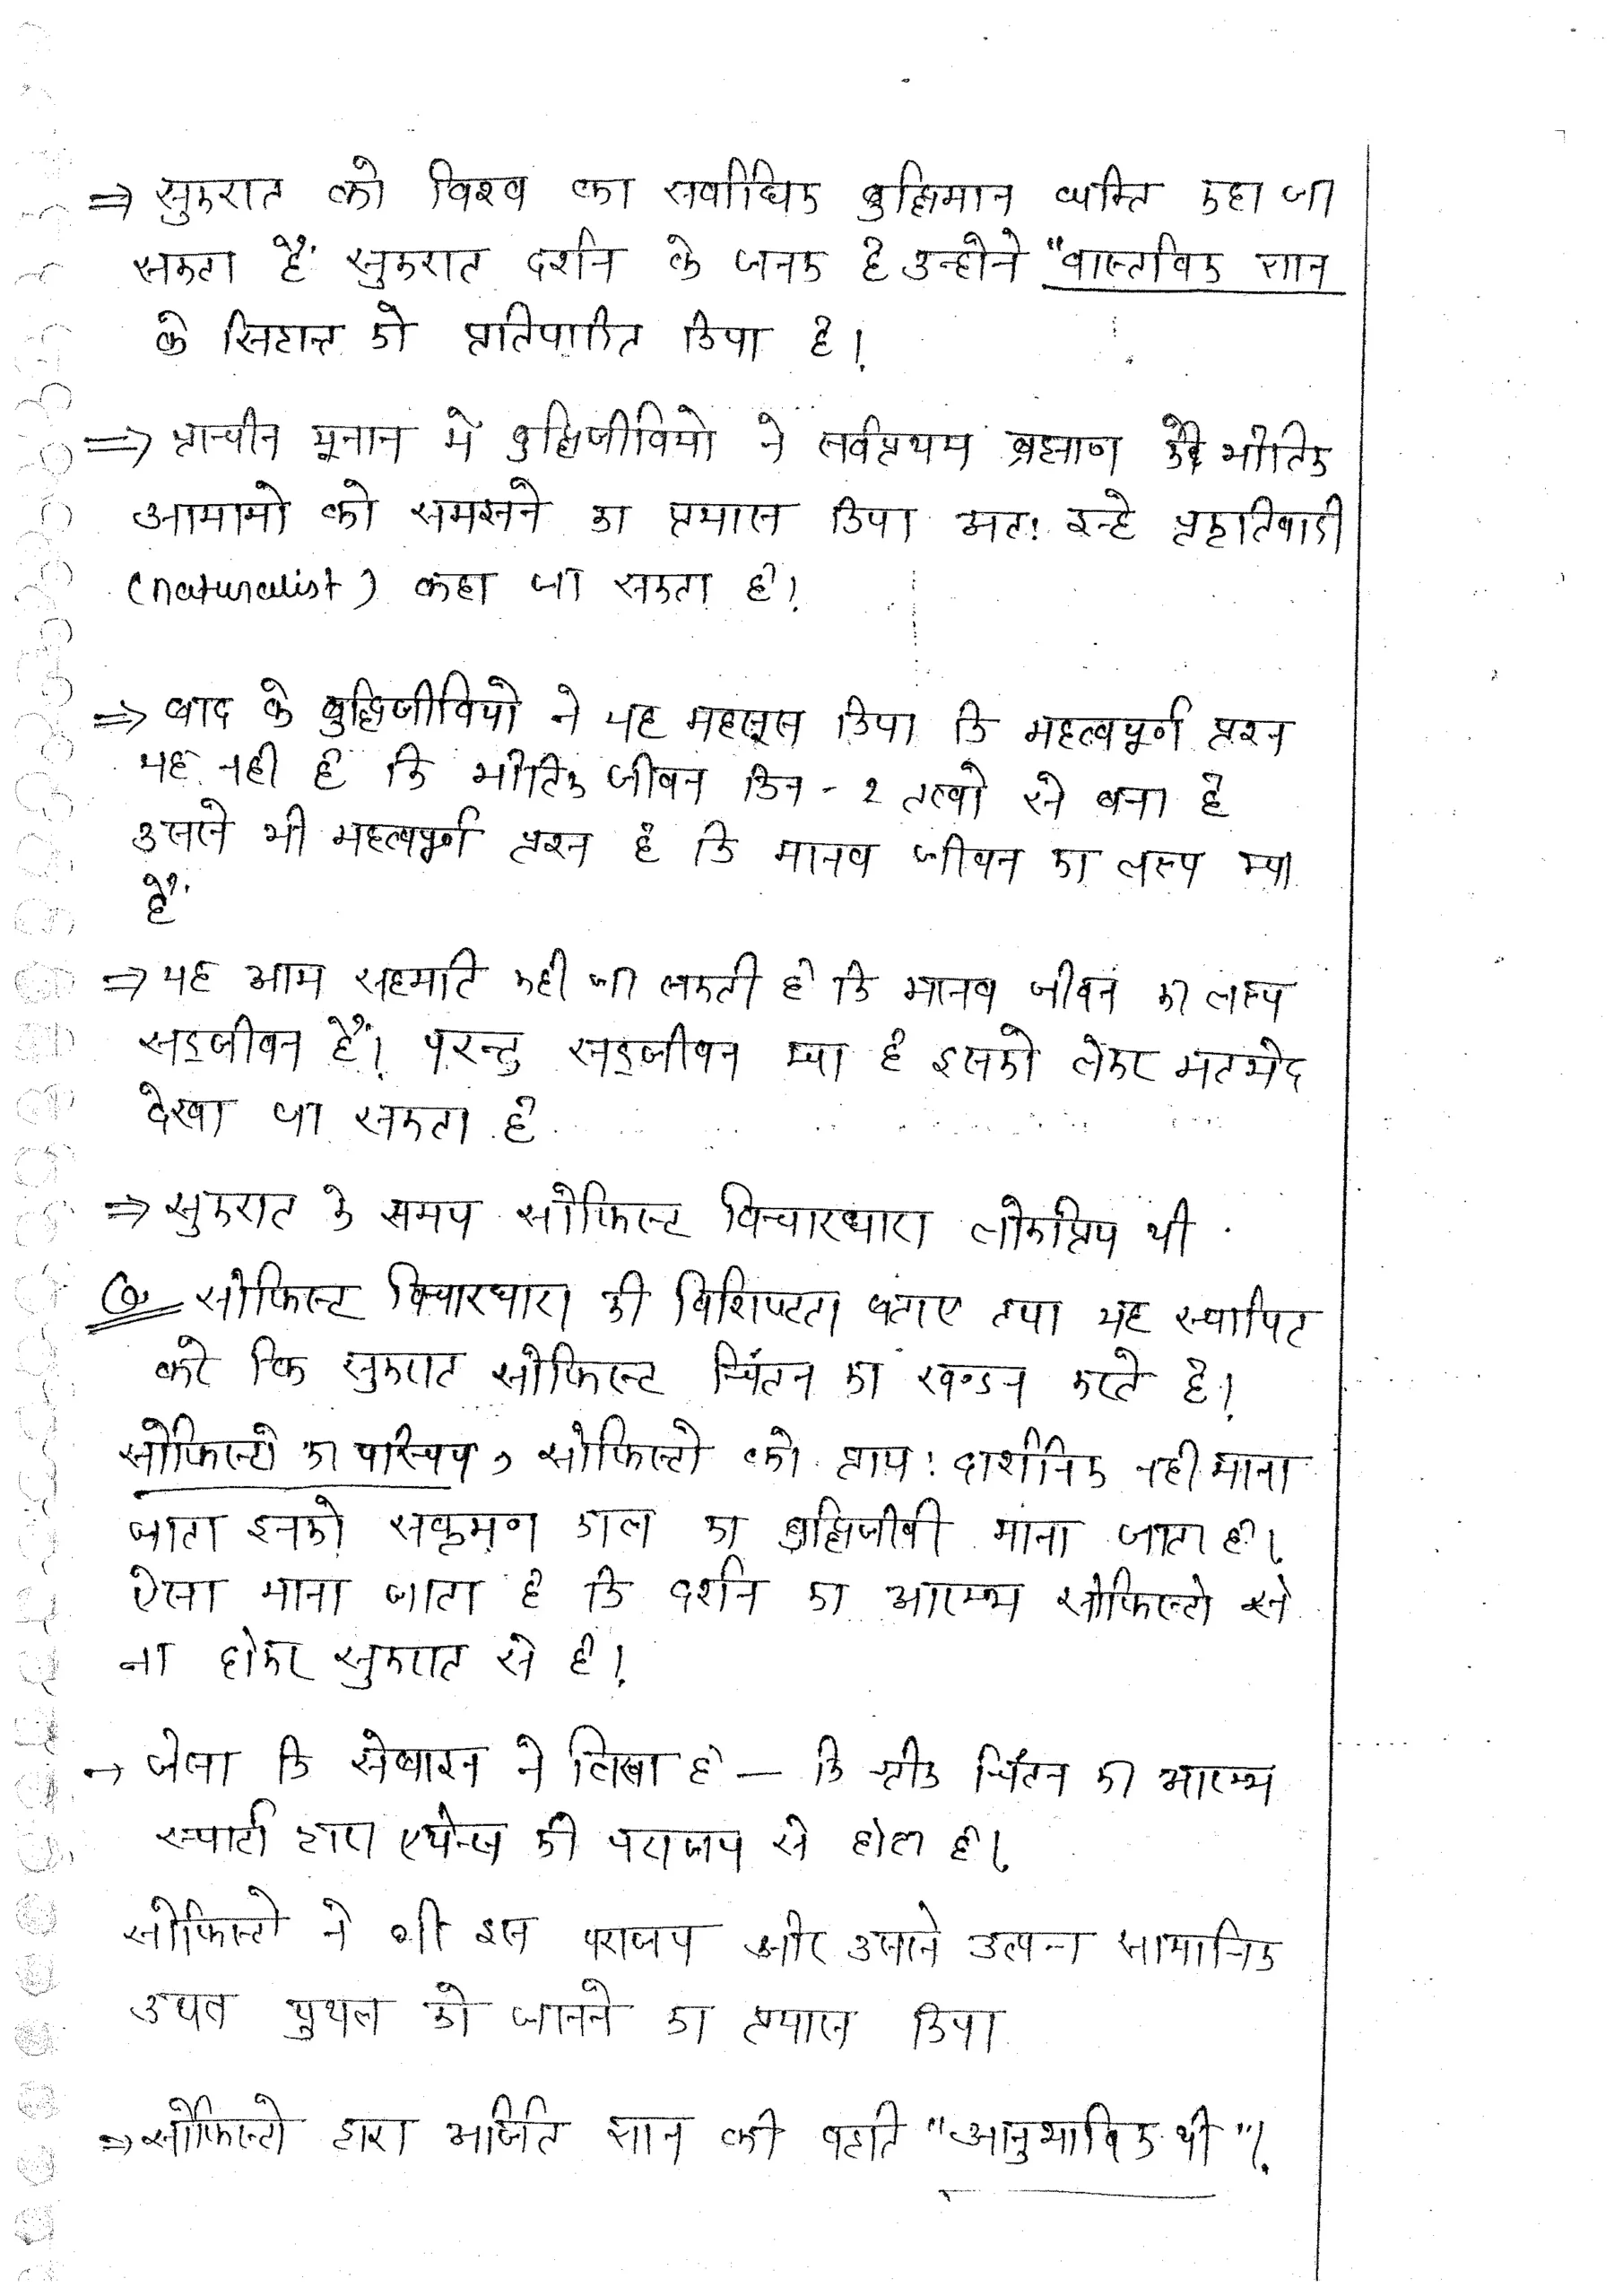 ⇒ सुकरात को विश्व का सर्वाधिक बुद्धिमान व्यक्ति कहा जा
सकता है सुकरात दर्शन के जनक है उन्होने "वास्तविक ज्ञान
के सिद्धान्त को प्रतिपादित किया है।
⇒ प्राचीन यूनान मे बुद्धिजीवियो ने सर्वप्रथम ब्रह्माण्ड के भौतिक
आयामो को समझने का प्रयास किया अतः इन्हे प्रकृतिवादी
(naturalist) कहा जा सकता है।
⇒ बाद के बुद्धिजीवियो ने यह महसूस किया कि महत्वपूर्ण प्रश्न
यह नही है कि भौतिक जीवन किन-२ तत्वो से बना है
उससे भी महत्वपूर्ण प्रश्न है कि मानव जीवन का लक्ष्य क्या
है
⇒ यह आम सहमति कही जा सकती है कि मानव जीवन का लक्ष्य
सद्जीवन है। परन्तु सद्जीवन क्या है इसको लेकर मतभेद
देखा जा सकता है
⇒ सुकरात के समय सोफिस्ट विचारधारा लोकप्रिय थी
Q. सोफिस्ट विचारधारा की विशिष्टता बताए तथा यह स्थापित
करे कि सुकरात सोफिस्ट चिंतन का खण्डन करते है।
सोफिस्टो का परिचय, सोफिस्टो को प्रायः दार्शनिक नही माना
जाता इनको सक्रमण काल का बुद्धिजीवी माना जाता है।
ऐसा माना जाता है कि दर्शन का आरम्भ सोफिस्टो से
ना होकर सुकरात से है।
→ जैसा कि सेबाइन ने लिखा है – कि ग्रीक चिंतन का आरम्भ
स्पार्टा द्वारा एथेन्स की पराजय से होता है।
सोफिस्टो ने भी इस पराजय और उससे उत्पन्न सामाजिक
उथल पुथल को जानने का प्रयास किया
⇒ सोफिस्टो द्वारा अर्जित ज्ञान की पद्धति "आनुभाविक थी"।